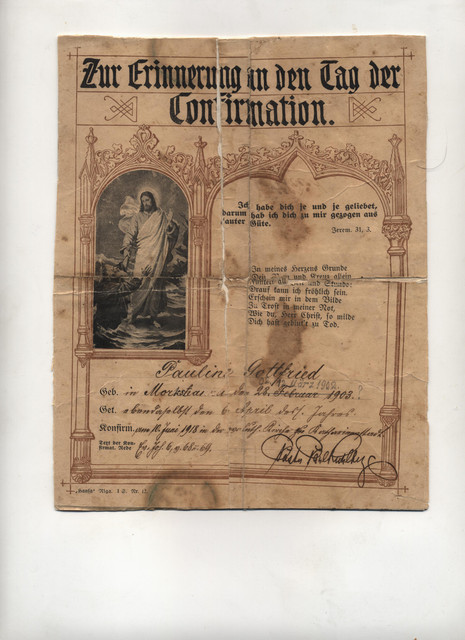 Zur Erinnerung an den Tag der
Confirmation.
Ich habe dich je und je geliebet,
darum hab ich dich zu mir gezogen aus
lauter Güte.
Jerem. 31, 3.
In meines Herzens Grunde
Dein Nam und Kreuz allein
Funkelt all Zeit und Stunde:
Drauf kann ich fröhlich sein.
Erschein mir in dem Bilde
Zu Trost in meiner Not,
Wie du, Herr Christ, so milde
Dich hast geblut't zu Tod.
Pauline Gottfried
März 1902
Geb. in den 23. Februar 1903.?
Get. ebendaselbst den 6 April Jahres
Konfirm. am 10. Juni 1918 in der Kirche zu
Text der Kon-
firmat. Rede Ev. Joh. 6, v. 68-69.
Riga. I S. Nr. 17.